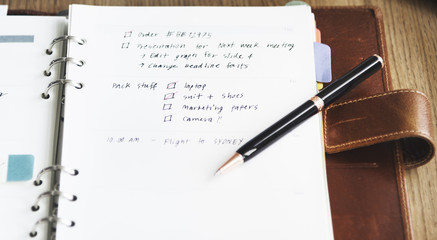 ☐ Order #
☐ Presentation for Next week meeting
→ Edit graph for slide 4
→ Change headline fonts
Pack stuff ☐ laptop
☐ suit + shoes
☐ marketing papers
☐ camera !!
10.00 AM - Flight to SYDNEY